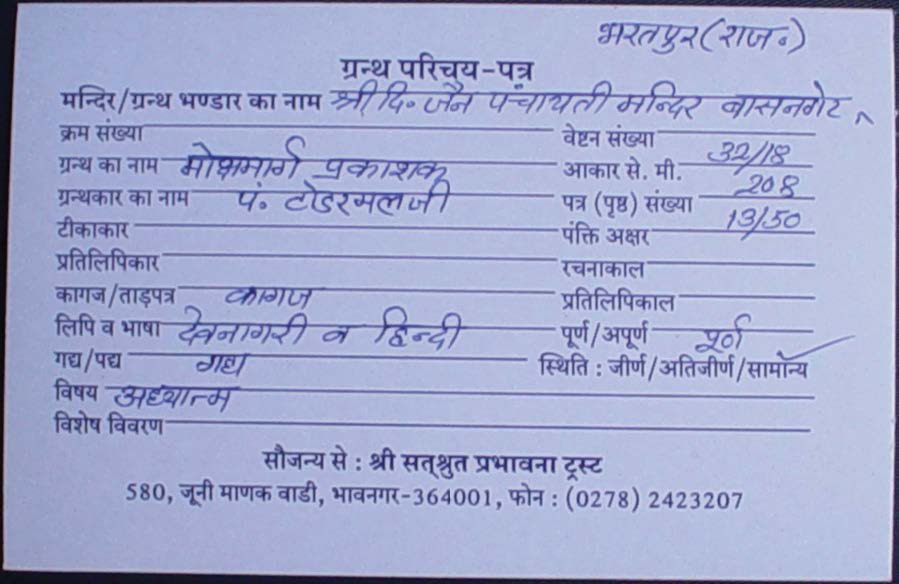 भरतपुर (राज॰)
ग्रन्थ परिचय-पत्र
मन्दिर/ग्रन्थ भण्डार का नाम श्री दि॰ जैन पंचायती मन्दिर बासनगेट
क्रम संख्या वेष्टन संख्या
ग्रन्थ का नाम मोक्षमार्ग प्रकाशक आकार से. मी. 32/18
ग्रन्थकार का नाम पं. टोडरमलजी पत्र (पृष्ठ) संख्या 208
टीकाकार पंक्ति अक्षर 13/50
प्रतिलिपिकार रचनाकाल
कागज/ताड़पत्र कागज प्रतिलिपिकाल
लिपि व भाषा देवनागरी व हिन्दी पूर्ण/अपूर्ण पूर्ण
गद्य/पद्य गद्य स्थिति : जीर्ण/अतिजीर्ण/सामान्य
विषय अध्यात्म
विशेष विवरण
सौजन्य से : श्री सत्श्रुत प्रभावना ट्रस्ट
580, जूनी माणक वाडी, भावनगर-364001, फोन : (0278) 2423207